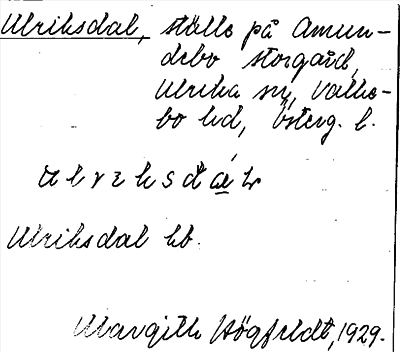 Ulriksdal, ställe på Amun-
debo storgård,
Ulrika sn, Valke-
bo hd, Österg. l.
Ulriksdal hb.
Margith Högfeldt, 1929.